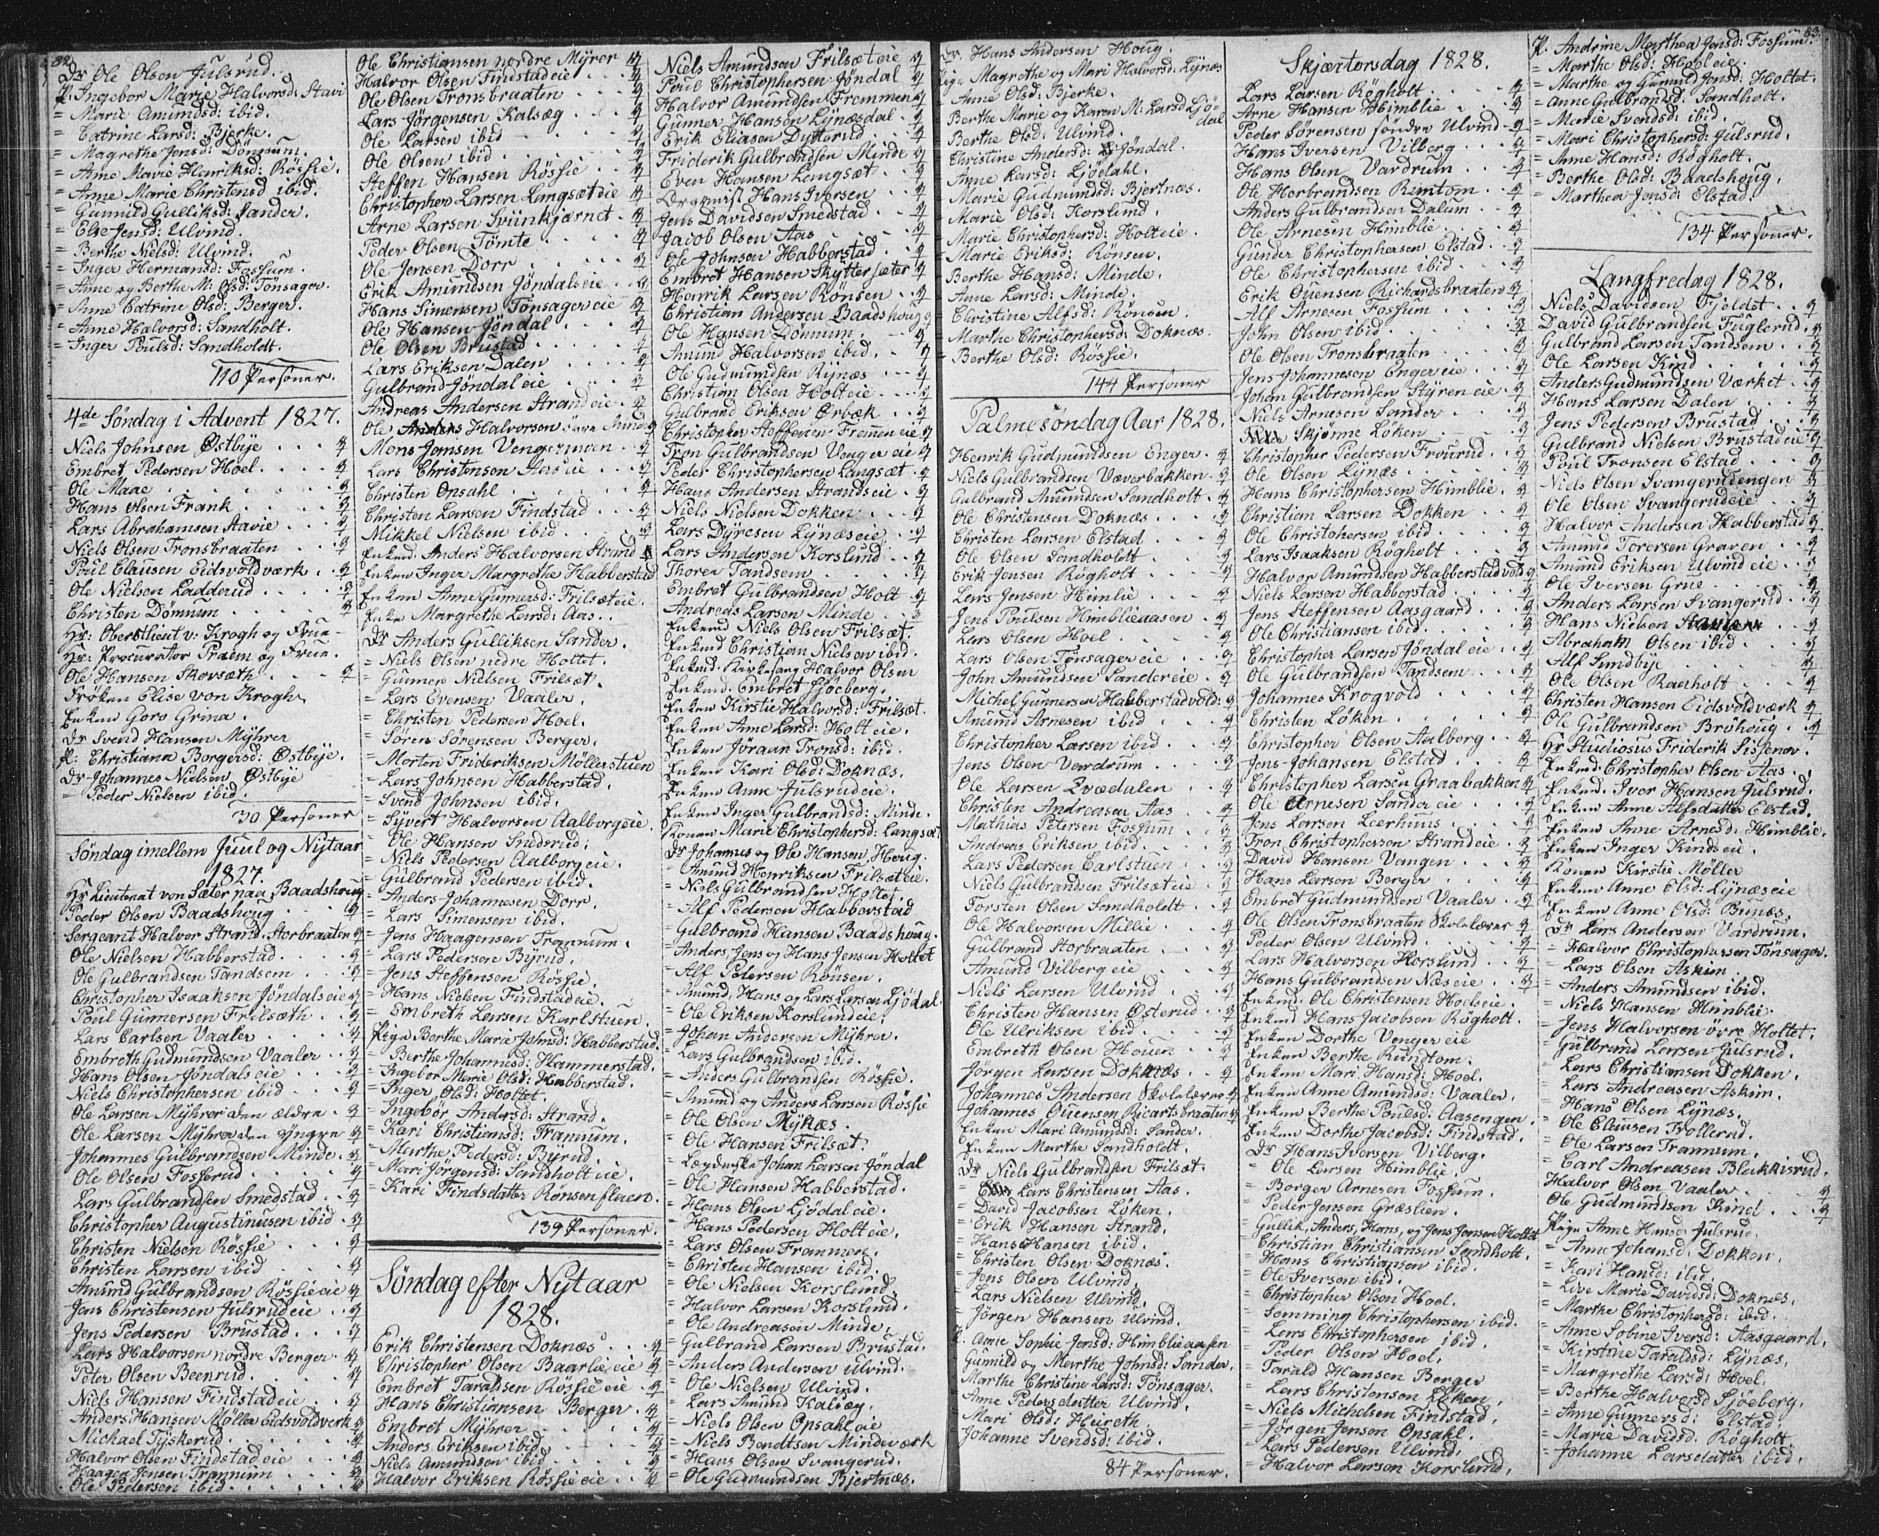 82.
Dr Ole Olsen Julsrud.
P. Ingebor Marie Halvorsd: Stavi
= Marie Amimdsd: ibid.
= Catrine Larsd: Bjerke.
= Magrethe Jensd: Dönnum.
= Anne Marie Henriksd: Röisie.
= Anne Marie Christensd ibid.
= Gunnild Gulliksd: Sander.
= Else Jensd: Ulvind.
= Berthe Nielsd: Ulvind.
= Inger Hermansd: Fossum.
= Anne og Berthe M. Olsd: Tönsager.
= Anne Catrine Olsd: Berger.
= Anne Halvorsd: Sandholt.
= Inger Poulsd: Sandholdt.
110 Personer.
4de Söndag i Advent 1827.
Niels Johnsen Østbye
Embret Pedersen Hoel
Ole Maae
Hans Olsen Frank
Lars Abrahamsen Stavie
Niels Olsen Tronsbraaten
Poul Clausen Eidsvoldværk
Ole Nielsen Ladderud
Christen Dönnum
Hr: Oberstlieut v: Krogh og Frue
Hr: Procurator Praem og Frue
Ole Hansen Skovsæth
Fröken Elise von Krogh
Enken Goro Grina.
Dr Svend Hansen Myhrer
P: Christiana Borgersd: Østbye.
Dr Johannes Nielsen Østbye
= Peder Nielsen ibid.
30 Personer
Söndag imellem Juul og Nytaar
1827.
Hr Lieutenat von Sæter paa Baadshoug
Peder Olsen Baadshoug
Sergeant Halvor Strand Storbraaten
Ole Nielsen Habberstad
Ole Gulbrandsen Tandsem
Christopher Isaaksen Jöndalseie
Poul Gunnersen Frilsæth
Lars Carlsen Vaaler
Embreth Gudmundsen Vaaler
Hans Olsen Jöndalseie
Niels Christophersen ibid
Ole Larsen Myhrer den ældre
Ole Larsen Myhrer den yngre
Johannes Gulbrandsen Minde
Ole Olsen Fosserud
Lars Gulbrandsen Smedstad
Christopher Augustinusen ibid
Christen Nielsen Rössie
Christen Larsen ibid
Amund Gulbrandsen Rössieeie
Jens Christensen Julsrudeie
Jens Pedersen Brustad
Lars Halvorsen nordre Berger
Peter Olsen Beenrud
Niels Hansen Findstadeie
Anders Hansen Möller Eidsvoldverk
Michael Tyskerud
Halvor Olsen Findstadeie
Haagen Jensen Trannum
Ole Pedersen ibid
Ole Christiansen nordre Myrer
Halvor Olsen Findstadeie
Ole Olsen Tronsbraaten
Lars Jörgensen Kalsæg
Ole Larsen ibid
Ole Olsen ibid
Steffen Hansen Rössie
Christopher Larsen Langsæteie
Arne Larsen Sviinkjærnet
Peder Olsen Tömte
Ole Jensen Dorr
Erik Amundsen Jöndalseie
Hans Simensen Tönsagereie
Ole Hansen Jöndal
Ole Olsen Brustad
Lars Eriksen Dalen
Gulbrand Jöndaleie
Andreas Andersen Strandeie
Ole Halvorsen
Mons Jansen Vengermoen
Lars Christensen
Christen Opsahl
Christen Larsen Findstad
Mikkel Nielsen ibid
Enkmd: Anders Halvorsen Strand
Enken Inger Margrethe Habberstad
Enken Anne Gunnersd: Frilsæteie.
Enken Margrethe Larsd: Aas.
Dr Anders Gulliksen Sander.
= Niels Olsen nedre Holtet.
= Gunner Nielsen Frilsæt.
= Lars Evensen Vaaler.
= Christen Pedersen Hoel.
= Sören Sörensen Berger.
= Morten Frideriksen Möllerstuen
= Lars Johnsen Habberstad.
= Svend Johnsen ibid.
= Syvert Halvorsen Aalborgeie.
= Ole Hansen Snedsrud.
= Niels Pedersen Aalborgeie.
= Gulbrand Pedersen ibid.
= Anders Johannesen Dorr.
= Lars Simensen ibid.
= Jens Haagensen Trannum.
= Lars Pedersen Byrud.
= Jens Steffensen Rössie.
= Hans Nielsen Findstadeie.
= Embreth Larsen Karlstuen.
Pige Berthe Marie Johnsd: Habberstad.
= Berthe Johannesd: Hammerstad.
= Ingebor Marie Olsd: Habberstad.
= Inger Olsd: Holtet.
= Ingebör Andersd: Strand.
= Kari Christiansd: Trannum.
= Marthe Pedersd: Byrud.
= Mari Jörgensd: Sandholteie.
= Kari Findsdatter Rönsenflaen.
139 Personer.
Söndag efter Nytaar
1828.
Erik Christensen Doknæs
Christopher Olsen Baarlieeie
Embret Taraldsen Rössieeie
Hans Christiansen Berger
Embret Myhrer
Anders Eriksen ibid
Niels Amundsen ibid
Halvor Eriksen Rössieeie
Niels Amundsen Frilsæteie
Poul Christophersen Jöndal
Halvor Amundsen Fremmen
Gunner Hansen Lynæsdal
Erik Eliasen Dytterud
Friderik Gulbrandsen Minde
Even Hansen Langsæt
Hans Iversen
Jens Davidsen Smedstad
Jacob Olsen Aas
Ole Johnsen Habberstad
Embret Hansen Skyttersæter
Henrik Larsen Rönsen
Christian Andersen Baadshoug
Ole Hansen Dönnum
Amund Halvorsen ibid
Ole Gudmundsen Rynæs
Christian Olsen Holteie
Gulbrand Eriksen Ørbæk
Christopher Steffensen Fremeneie
Tron Gulbrandsen Vengereie
Peder Christophersen Langsæt
Hans Andersen Strandseie
Niels Nielsen Dokken
Lars Dyresen Lynæseie
Lars Andersen Korslund
Thorer Tandsem
Embret Gulbrandsen Holt
Andreas Larsen Minde
Enkemd Niels Olsen Frilsæt.
Enkmd Christian Nielsen ibid.
Enkmd. Kirkesang Halvor Olsen
Enkmd: Embret Sjöeberg.
Enken Kirstie Halvorsd: Frilsæt.
Enken Anne Larsd: Holteie.
Enken Jöraan Tronsd: ibid.
Enken Kari Olsd: Doknæs.
Enken Anne Julsrudeie.
Enken Inger Gulbrandsd: Minde.
Konen Marie Christophersd: Langsæt
Dr Johannes og Ole Hansen Houg.
= Amund Henriksen Frilsæteie.
= Niels Gulbrandsen Holtet.
= Alf Pedersen Habberstad
= Gulbrand Hansen Baadshoug.
= Anders, Jens og Hans Jensen Holtet
= Alf Pedersen Rönsen.
= Amund, Hans og Lars Larsen Ljödal
= Ole Eriksen Korslundeie.
= Johan Andersen Myhrer.
= Lars Gulbrandsen ibid.
= Anders Gulbrandsen Rössie.
= Amund og Anders Larsen Rössie
= Ole Olsen Mykæs.
= Ole Hansen Frilsæt.
= Johan Larsen Jöndal
= Ole Hansen Habberstad
= Hans Olsen Ljödaleie.
= Hans Pedersen Holteie.
= Lars Olsen Frammen.
= Christen Hansen ibid.
= Ole Nielsen Korslund.
= Halvor Larsen Korslund.
= Ole Andreasen Minde.
= Gulbrand Larsen Brustad.
= Anders Andersen Ulvind.
= Ole Nielsen Ulvind.
= Lars Amund Kalsæg.
= Niels Olsen Opsahleie
= Niels Bendtsen Mindeværk
= Hans Olsen Svangerud.
= Ole Gudmundsen Bjertnæs.
Dr Hans Andersen Houg.
Pige Magrethe og Mari Halvorsd: Lynæs
Anne Olsd: Bjerke.
Berthe Marie og Karen M. Larsd Ljödal
Berthe Olsd: Ulvind.
Christine Andersd: Jöndal.
Anne Larsd: Ljödahl.
Marie Gudmundsd: Bjertnæs.
Marie Olsd: Korslund.
Marie Christophersd: Holteie.
Marie Eriksd: Rönsen.
Berthe Hansd: Minde.
Anne Larsd: Minde.
Christine Alfsd: Rönsen.
Marthe Christophersd: Doknæs.
= Berthe Olsd: Rössie.
144 Personer
Palmesöndag Aar 1828.
Henrik Gudmundsen Enger
Niels Gulbrandsen Væverbakken
Gulbrand Amundsen Sandholt
Ole Christensen Doknæs
Christen Larsen Elstad
Ole Olsen Sandholdt
Erik Jensen Rögholt
Lars Jensen Himlie
Jens Poulsen Himblieaasen
Lars Olsen Hoel
Lars Olsen Tönsagereie
John Amundsen Sandereie
Michel Gunnersen Habberstadvold
Amund Arnesen ibid
Christopher Larsen ibid
Jens Olsen Vardrum
Ole Larsen Qvædalen
Christen Andreasen Aas
Mathias Petersen Fossum
Andreas Eriksen ibid
Lars Pedersen Carlstuen
Niels Gulbrandsen Frilsæteie
Torsten Olsen Sandholdt
Ole Halvorsen Millie
Gulbrand Storbraaten
Amund Vilbergeie
Niels Larsen Ulvind
Christen Hansen Østerud
Ole Ulriksen ibid
Embreth Olsen Houen
Jörgen Larsen Doknæs
Johannes Andersen Skolelærer
Johannes Ouensen Ricartsbraaten
Enken Mari Amundsd: Sander.
Enken Marthe Sandholdt.
Dr Niels Gulbrandsen Frilsæt.
= Lars Christensen Aas.
= David Jacobsen Löken.
= Erik Hansen Strand.
= Hans Hansen ibid.
= Christen Olsen Doknæs.
= Jens Olsen Ulvind.
= Lars Nielsen Ulvind.
= Jörgen Hansen Ulvind.
P. Anne Sophie Jensd: Himblieaasen
Gunild og Marthe Johnsd: Sander.
Marthe Christine Larsd: Tönsager.
Anne Pedersdatter Ulvind.
Mari Olsd: Heireth.
Johanne Svendsd: ibid.
84 Personer.
Skjærtorsdag 1828.
Lars Larsen Rögholt
Arne Hansen Himblie
Peder Sörensen Söndre Ulvind
Hans Iversen Vilberg
Hans Olsen Vardrum
Ole Herbrandsen Remtom
Anders Gulbrandsen Dalum
Ole Arnesen Himblie
Gunder Christophersen Elstad
Ole Christophersen ibid
Erik Ouensen Richardsbraaten
Alf Arnesen Fossum
John Olsen ibid
Ole Olsen Tronsbraaten
Jens Johannesen Engereie
Johan Gulbrandsen Styreneie
Niels Arnesen Sander
Skjönne Löken
Christopher Pedersen Frourud
Ole Olsen Lynæs
Hans Christophersen Himblie
Christian Larsen Dokken
Ole Christophersen ibid
Lars Isaaksen Rögholt
Halvor Amundsen Habberstadvold
Niels Larsen Habberstad
Jens Steffensen Aasgaard
Ole Christiansen ibid
Christopher Larsen Jöndaleie
Ole Gulbrandsen Tandsem
Johannes Krogvold
Christen Löken
Christopher Olsen Aalborg
Jens Johansen Elstad
Christopher Larsen Graabakken
Ole Arnesen Sandereie
Jens Larsen Leerhuus
Tron Christophersen Strandeie
David Hansen Vangen
Hans Larsen Berger
Embret Gudmundsen Vaaler
Ole Olsen Tronsbraaten Skolelærer
Peder Olsen Ulvind
Lars Halvorsen Korslund
Hans Gulbrandsen Næseie
Enkmd: Ole Christensen Hoelseie.
Enkmd Hans Jacobsen Rögholt.
Enken Dorthe Vengereie
Enken Berthe Rundtom.
Enken Mari Hansd: Hoel.
Enken Anne Amundsd: Vaaler.
Enken Berthe Poulsd: Aasengen.
Enken Dorthe Jacobsd: Findstad.
Dr Hans Iversen Vilberg.
= Ole Larsen Himblie.
= Borger Arnesen Fossum.
= Peder Jensen Græslien.
= Gullik, Anders, Hans, og Jens Jensen Holtet
= Christian Christiansen Sandholt.
= Hans Christiansen ibid.
= Ole Iversen ibid.
= Christopher Olsen Hoel.
= Semming Christophersen ibid.
= Lars Christophersen ibid.
= Peder Olsen Hoel.
= Tarald Hansen Berger
= Lars Christensen Löken.
= Niels Michelsen Findstad.
= Jörgen Jensen Opsahl.
= Lars Pedersen Ulvind.
= Halvor Larsen Korslund.
83.
P. Andrine Marthea Jensd: Fossum.
= Marthe Olsd: Hoeleie.
= Marthe og Gunnild Jensd: Holtet.
= Anne Gulbrandsd: Sandholt.
= Marie Svendsd: ibid.
= Mari Christophersd: Julsrud.
= Anne Hansd: Rögholt.
= Berthe Olsd: Baadshoug.
= Marthea Jensd: Elstad.
134 Personer.
Langfredag 1828.
Niels Davidsen Fjeldst
David Gulbrandsen Fuglerud
Gulbrand Larsen Tandsem
Ole Larsen Kind
Anders Gudmundsen Værket
Hans Larsen Dalen
Jens Pedersen Brustad
Gulbrand Nielsen Brustadeie
Poul Tronsen Elstad
Niels Olsen Svangerudengen
Ole Olsen Svangerudeie
Halvor Andersen Habberstad
Amund Torersen Graven
Amund Eriksen Ulvindeie
Ole Iversen Grue
Anders Larsen Svangerud
Hans Nielsen
Abraham Olsen ibid
Alf Sundbye
Ole Olsen Raaholt
Christen Hansen Eidsvoldværk
Ole Gulbrandsen Bröhoug
Hr Studiosus Friderik Sissener
Enkmd: Christopher Olsen Aas.
Enkmd. Iver Hansen Julsrud.
Enken Anne Alfsdatter Elstad.
Enken Anne Arnesd: Himblie.
Enken Inger Kindeie.
Konen Kirstie Möller
Enken Anne Olsd: Lynæseie
Enken Anne Olsd: Bunæs.
Dr Lars Andersen Vardrum.
= Halvor Christophersen Tönsager.
= Lars Olsen Askim.
= Anders Amundsen ibid.
= Niels Hansen Himblie
= Jens Halvorsen vere Holtet.
= Gulbrand Larsen Julsrud.
= Lars Christiansen Dokken.
= Lars Andreasen Askim.
= Hans Olsen Lynæs.
= Ole Clausen Bollerud.
= Ole Larsen Trannum.
= Carl Andreasen Blakkisrud.
Halvor Olsen Vaaler
Ole Gudmundsen Kind
Pige Anne Hansd Julsrud.
= Anne Johansd: Dokken.
= Kari Hansd: ibid.
= Live Marie Davidsd: Doknæs.
= Marthe Christophersd: ibid.
= Anne Sobine Iversd: Aasgaard.
= Kirstine Taraldsd: Lynæs.
= Margrethe Larsd: Hoel.
= Berthe Halvorsd Sjöeberg.
= Anne Gunnersd: Elstad.
= Marie Davidsd: Rögholt.
= Johanne Larsdatter ibid.